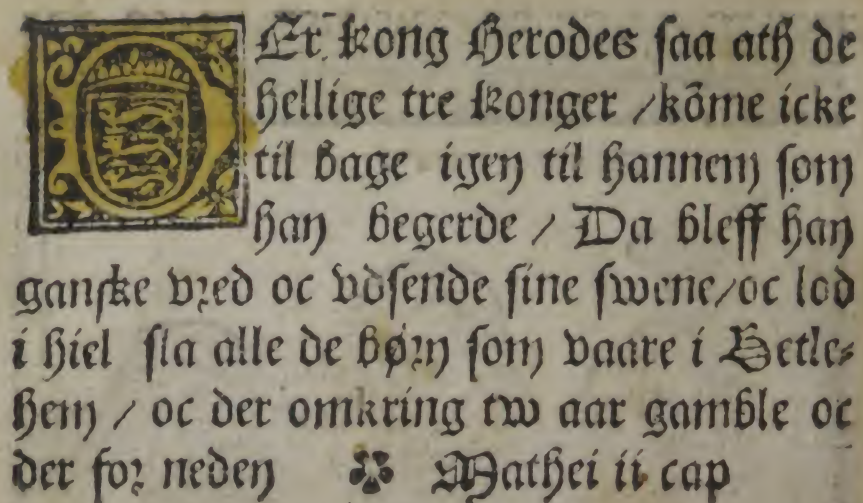 DEr kong Herodes saa ath de
hellige tre konger /kōme icke
til bage igen til hannem som
han begerde / Da bleff han
ganske vred oc vdsende sine swene/oc lod
i hiel sla alle de børn som vaare i Betle-
hem / oc der omkring tw aar gamble oc
der for neden ✤ Mathei ii cap